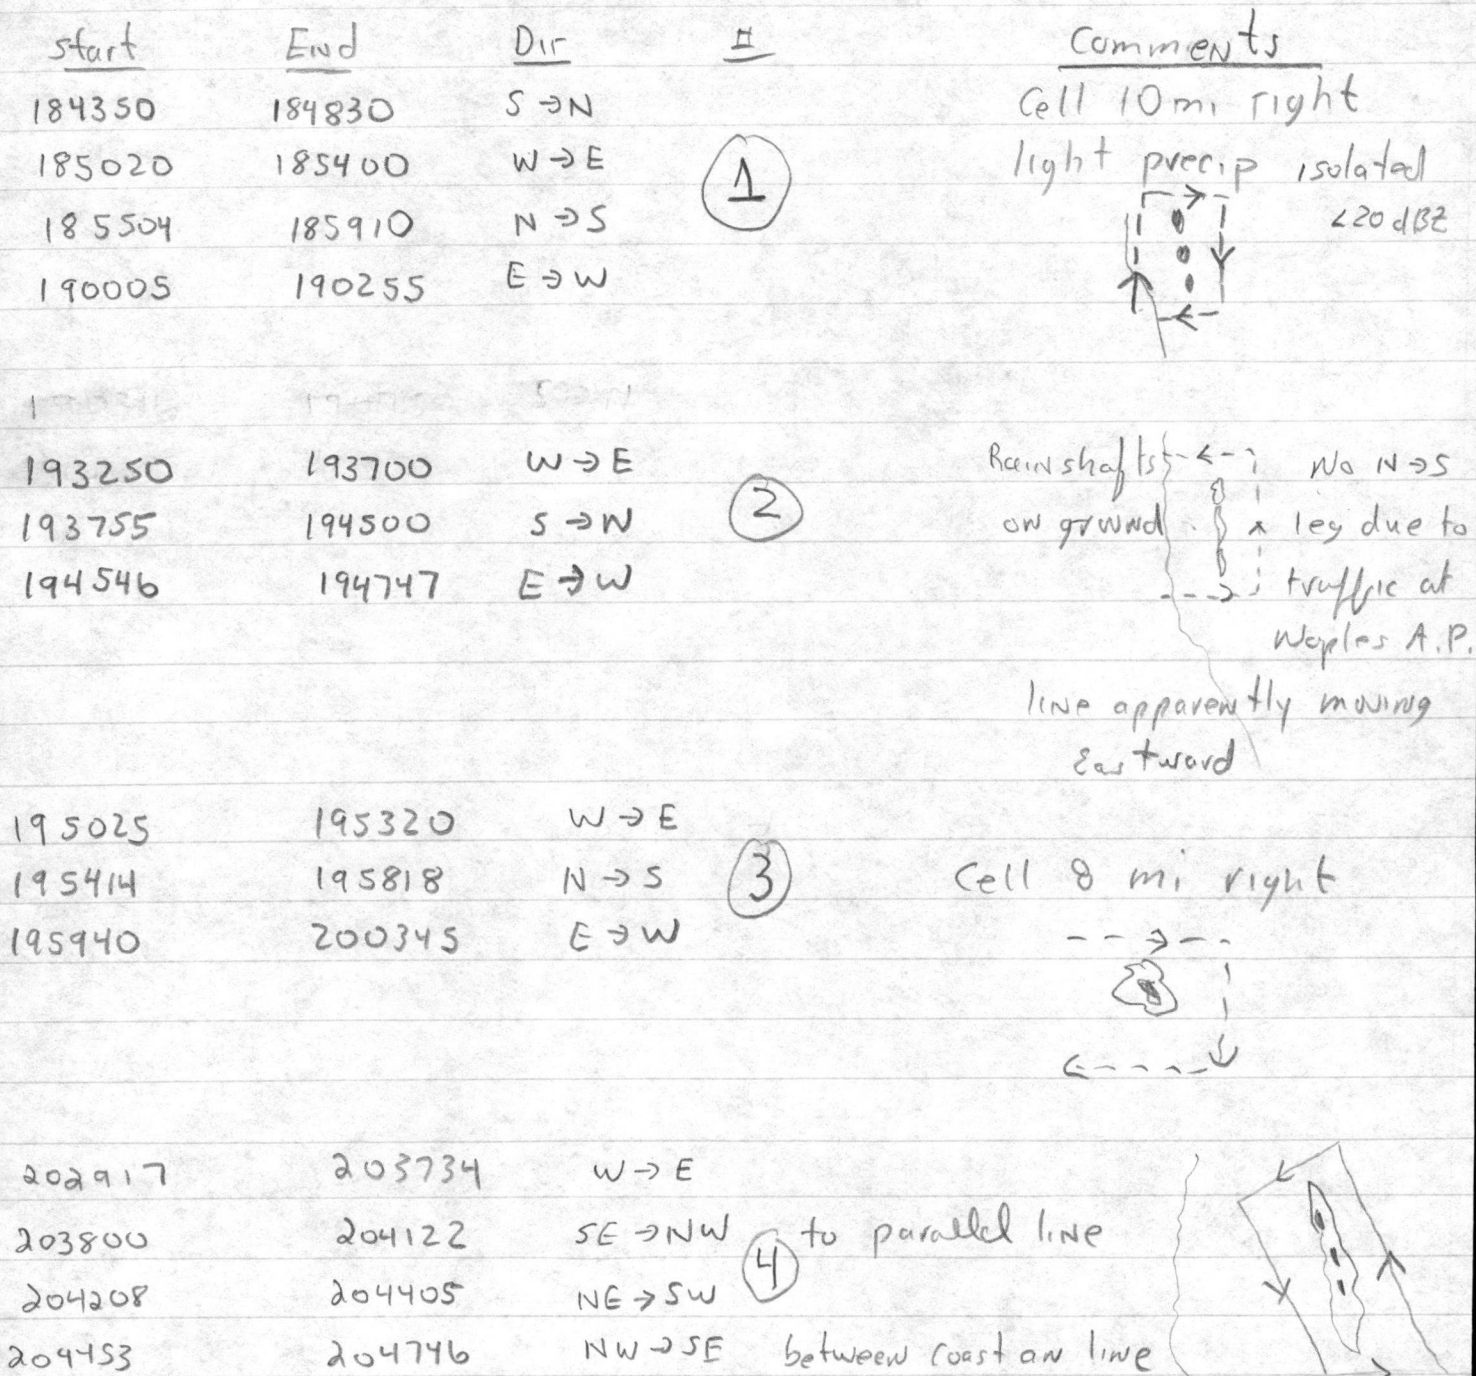 Start End Dir # Comments
184350 184830 S→N Cell 10 mi right
185020 185400 W→E ① light precip isolated
185504 185910 N→S <20 dBZ
190005 190255 E→W
193250 193700 W→E Rainshafts No N→S
193755 194500 S→N ② on ground leg due to
194546 194747 E→W traffic at
Naples A.P.
line apparently moving
Eastward
195025 195320 W→E
195414 195818 N→S ③ Cell 8 mi right
195940 200345 E→W
202917 203734 W→E
203800 204122 SE→NW ④ to parallel line
204208 204405 NE→SW
204453 204746 NW→SE between coast an line